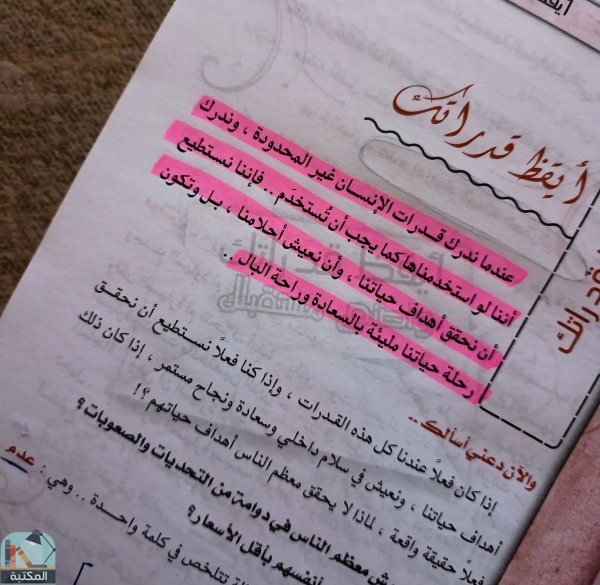 أيقظ قدراتك
عندما ندرك قدرات الإنسان غير المحدودة ، وندرك
أننا لو استخدمناها كما يجب أن تُستخدَم .. فإننا نستطيع
أن نحقق أهداف حياتنا ، وأن نعيش أحلامنا ، بل وتكون
رحلة حياتنا مليئة بالسعادة وراحة البال ..
والآن دعني أسألك ..
إذا كان فعلاً عندنا كل هذه القدرات ، وإذا كنا فعلاً نستطيع أن نحقق
أهداف حياتنا ، ونعيش في سلام داخلي وسعادة ونجاح مستمر ، إذا كان ذلك
فعلاً حقيقة واقعة ، لماذا لا يحقق معظم الناس أهداف حياتهم ؟!
معظم الناس في دوامة من التحديات والصعوبات ؟
أنفسهم بأقل الأسعار؟
تتلخص في كلمة واحدة .. وهي : عدم
قدراتك
المكتبة